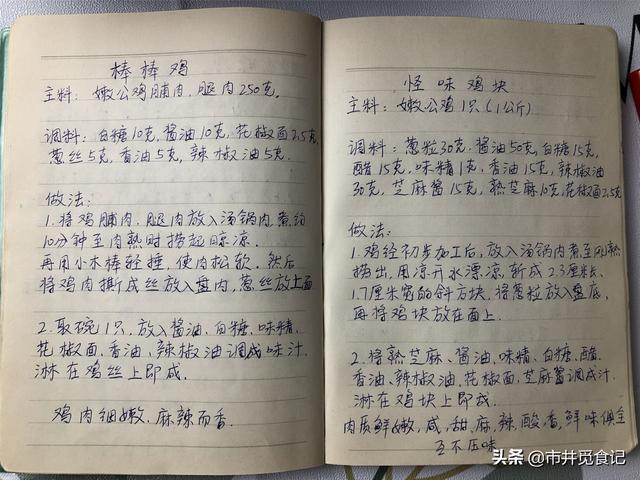 棒棒鸡
主料: 嫩公鸡脯肉、腿肉250克.
调料: 白糖10克,酱油10克,花椒面2.5克
葱丝5克,香油5克,辣椒油5克.
做法:
1.将鸡脯肉、腿肉放入汤锅内,煮约
10分钟至肉熟时捞起晾凉.
再用小木棒轻捶,使肉松软,然后
将鸡肉撕成丝放入盘内,葱丝放上面
2.取碗1只,放入酱油、白糖、味精、
花椒面、香油、辣椒油调成味汁,
淋在鸡丝上即成.
鸡肉细嫩,麻辣而香.
怪味鸡块
主料: 嫩公鸡1只(1公斤)
调料: 葱粒30克,酱油50克,白糖15克,
醋15克,味精1克,香油15克,辣椒油
30克,芝麻酱15克,熟芝麻10克,花椒面2.5克
做法:
1.鸡经初步加工后,放入汤锅内煮至刚熟
捞出,用凉开水漂凉,斩成2.3厘米长、
1.7厘米宽的斜方块,将葱粒放入盘底,
再将鸡块放在面上.
2.将熟芝麻、酱油、味精、白糖、醋、
香油、辣椒油、花椒面、芝麻酱调成汁,
淋在鸡块上即成.
肉质鲜嫩,咸,甜,麻,辣,酸,香,鲜味俱全
互不压味
头条 @市井觅食记